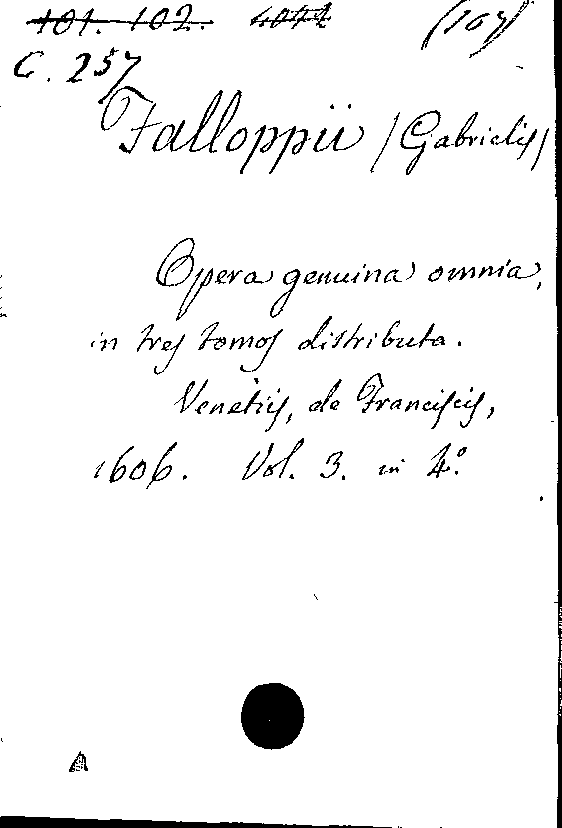 101. 102. 4042 (107)
C. 257
Falloppii (Gabrielis)
Opera genuina omnia,
in tres tomos distributa.
Venetiis, de Franciscis,
1606. Vol. 3. in 4º.
A